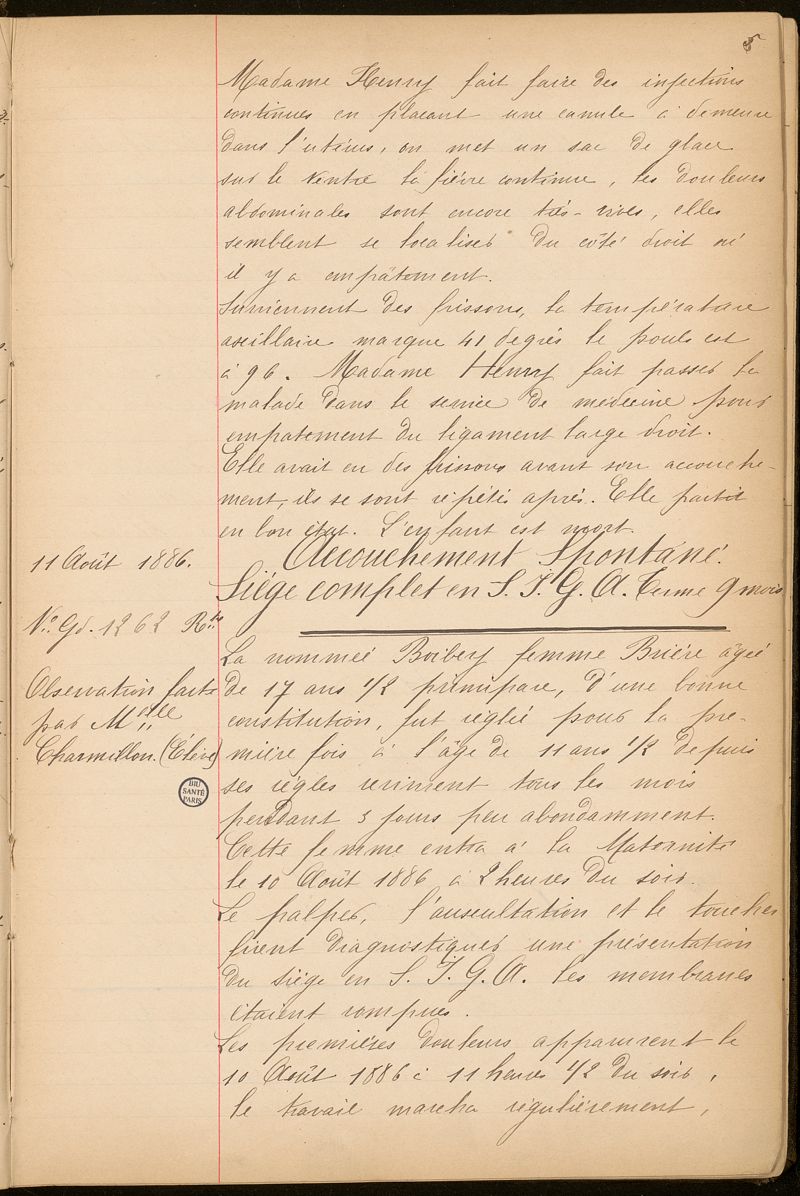 5
Madame Henry fait faire des injections
continues en placant une canule à demeure
dans l'utérus, on met un sac de glace
sur le ventre la fièvre continue, les douleurs
abdominales sont encore très-vives, elles
semblent se localiser du côté droit où
il y a empâtement.
Surviennent des frissons, la température
axillaire marque 41 degrés le pouls est
à 96. Madame Henry fait passer la
malade dans le service de médecine pour
empatement du ligament large droit.
Elle avait eu des frissons avant son accouche-
ment, ils se sont répétés après. Elle partit
en bon état. L'enfant est mort.
11 Août 1886.
Accouchement Spontané.
Siège complet en S. I. G. A. Terme 9 mois
No. Gd. 1262 Rtre
Observation faite
par Melle
Charmillon. (Élève)
La nommée Boibery femme Brière âgée
de 17 ans 1/2 primipare, d'une bonne
constitution, fut réglée pour la pre-
mière fois à l'âge de 11 ans 1/2 depuis
ses règles vinrent tous les mois
pendant 3 jours peu abondamment.
Cette femme entra à la Maternité
le 10 Août 1886 à 2 heures du soir.
Le palper, l'auscultation et le toucher
firent diagnostiquer une présentation
du siège en S. I. G. A. les membranes
étaient rompues.
Les premières douleurs apparurent le
10 Août 1886 à 11 heures 1/2 du soir,
le travail marcha régulièrement,
BIU
SANTÉ
PARIS